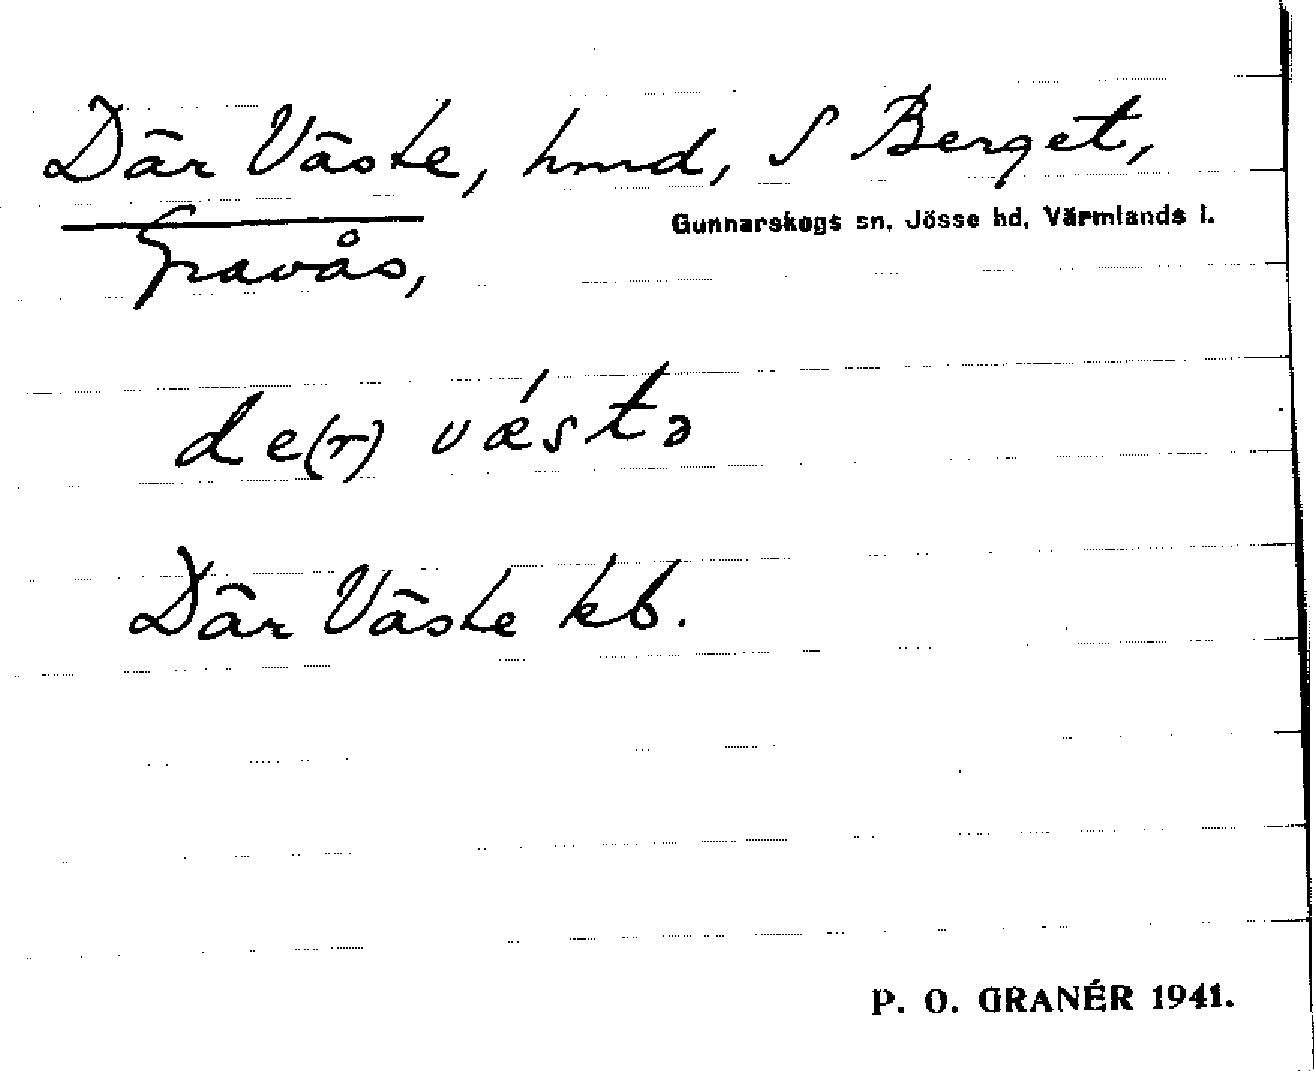 Där Väste, hmd, S Berget,
Gunnarskogs sn, Jösse hd, Värmlands l.
Gravås,
de(r) vǽstə
Där Väste kb.
P. O. GRANÉR 1941.